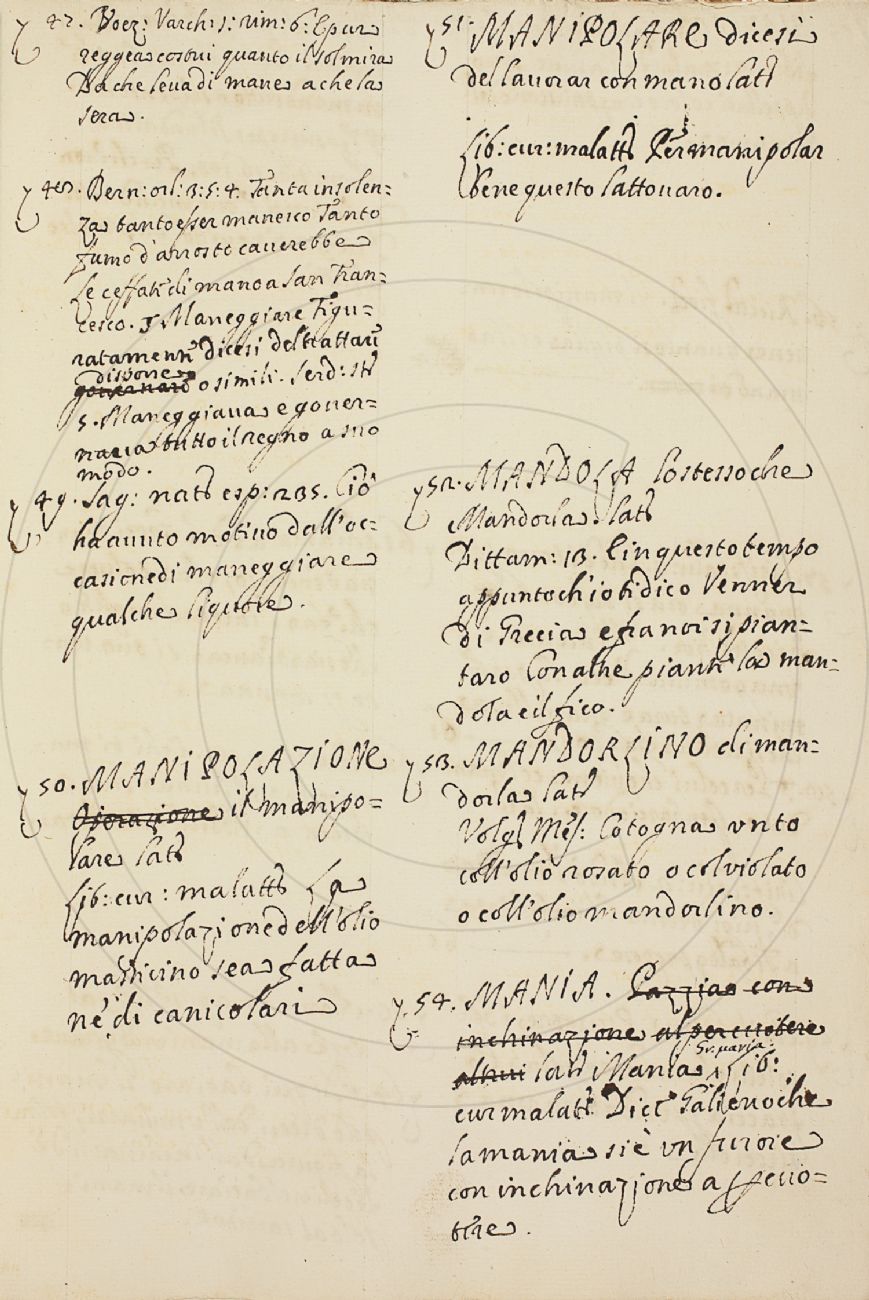 47. Boez: Varch: 1: rim: 6: Epur
reggea costui quanto il sol mira
Da che leua di mane a che la
sera.
48. Bern: orl: 3: 5: 4. Tanta insolen=
za tanto esser manesco Tanto
fumo d'arrosto cauerebbe
Le ceffati di mano a san Fran=
cesco. § Maneggiare Figu=
ratamente dicesi del trattare
disporre
gouernare o simili. Serd: st:
5. Maneggiaua e gouer=
naua tutto il regno a suo
modo.
49. Sag: nat: esp: 235. Ciò
ha auuto motiuo dall'oc=
casione di maneggiare
qualche liquore.
50. MANIPOLAZIONE
Operazione il manipo=
lare lat:
Lib: cur: malatt: La
manipolazione dell'olio
masticino sea fatta
ne' di canicolari
51. MANIPOLARE dicesi
del lauorar con mano lat:
Lib: cur: malatt: Per manipolar
bene questo lattouaro.
52. MANDOLA Lo stesso che
Mandorla. lat:
Dittam: 13. E in questo tempo
appunto ch'io ti dico Venner
di Grecia e qua noi si pian=
taro Con altre piante la man=
dola e il fico.
53. MANDORLINO di man=
dorla lat:
Volg: Mes: Cotogna unto
coll'olio rosato o col violato
o coll'olio mandorlino.
54. MANIA. Pazzia con
inchinazione al percuotere
altrui lat: Mania Lib:
Gr. μανία.
cur malatt: Dice Galieno che
la mania si è un furore
con inchinazione a percuo=
tere.